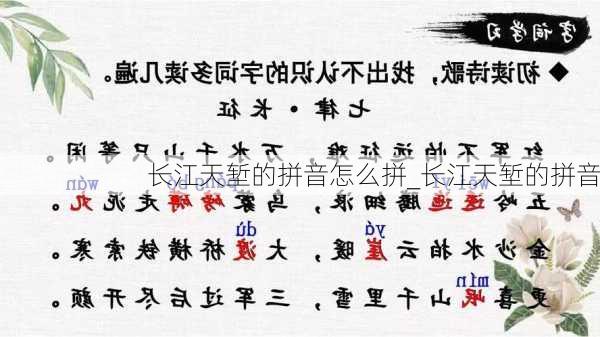 字词学习
◆ 初读诗歌，找出不认识的字词多读几遍。
七律 • 长征
红军不怕远征难，万水千山只等闲。
长江天堑的拼音怎么拼_长江天堑的拼音
wēi yí páng bó wán
五岭逶迤腾细浪，乌蒙磅礴走泥丸。
yá dù
金沙水拍云崖暖，大渡桥横铁索寒。
mín
更喜岷山千里雪，三军过后尽开颜。